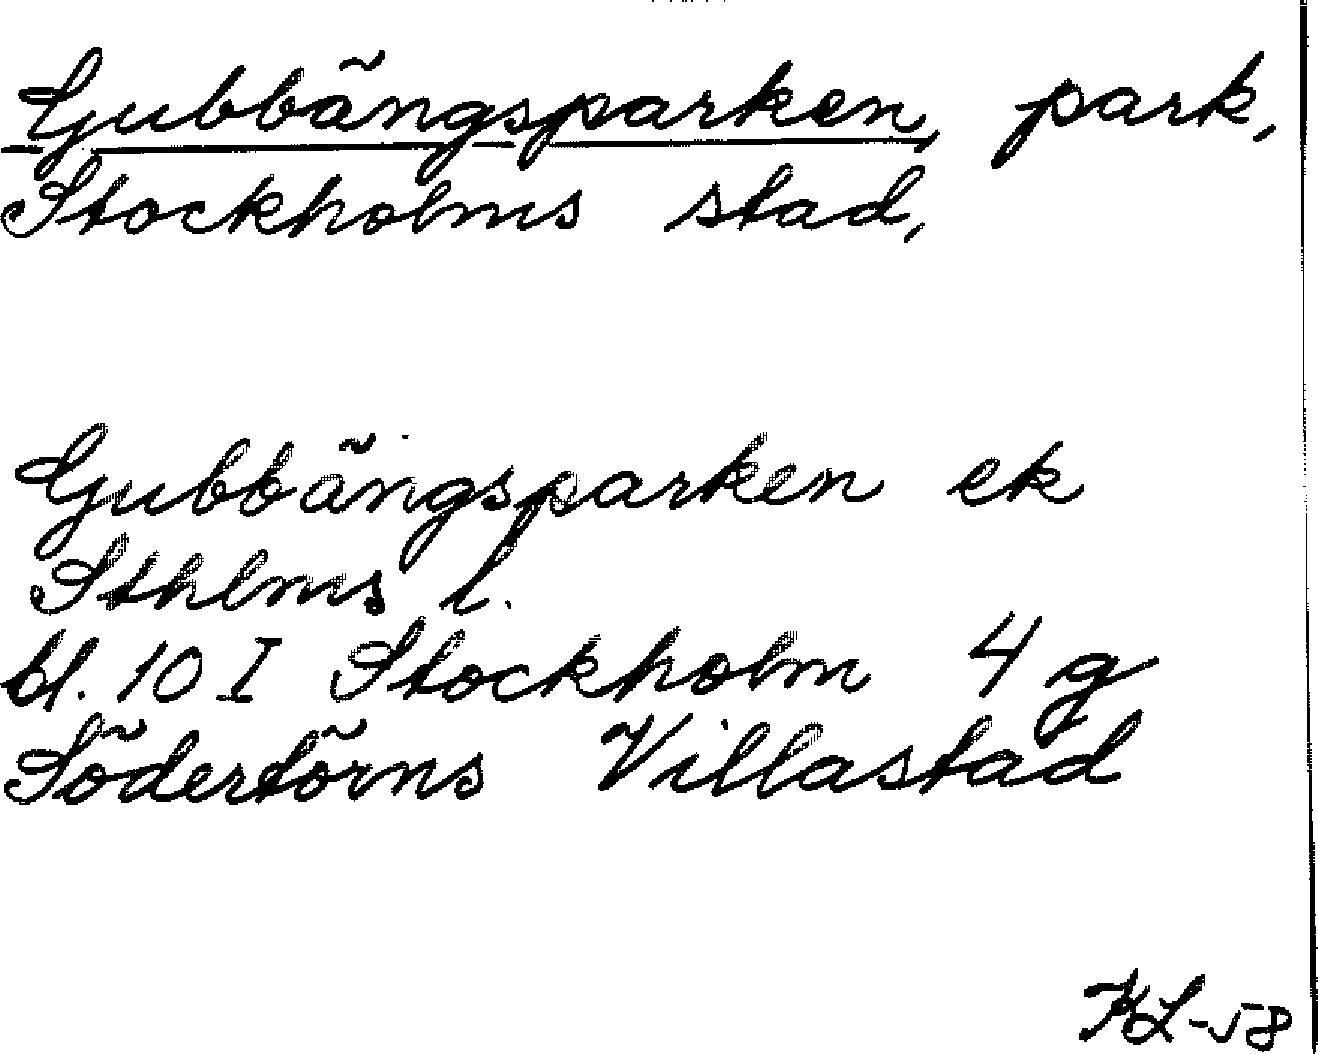 Gubbängsparken, park,
Stockholms stad,
Gubbängsparken ek
Sthlms l.
bl. 10 I Stockholm 4 g
Södertörns Villastad
KL-58